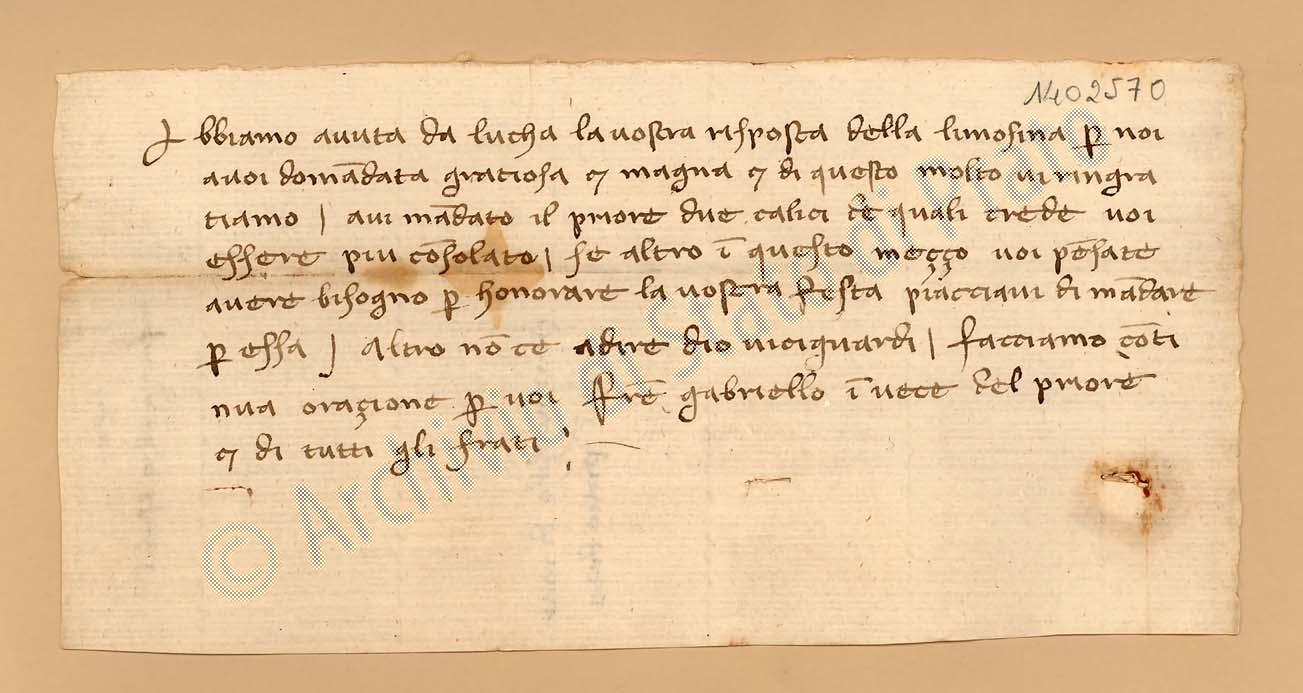 1402570
Abbiamo avuta da lucha la vostra risposta della limosina p̄ noi
a voi domādata gratiosa ⁊ magna ⁊ di questo molto vi ringra
tiamo / avi mādato il priore due calici de quali crede voi
essere piu cōsolato / se altro ī questo meçço voi pēsate
avere bisogno p̄ honorare la vostra festa piacciavi di mādare
p̄ essa / Altro nō ce a dire dio vi ci guardi / facciamo cōti
nua oraçione p̄ voi frē gabriello ī vece del priore
⁊ di tutti gli frati
© Archivio di Stato di Prato